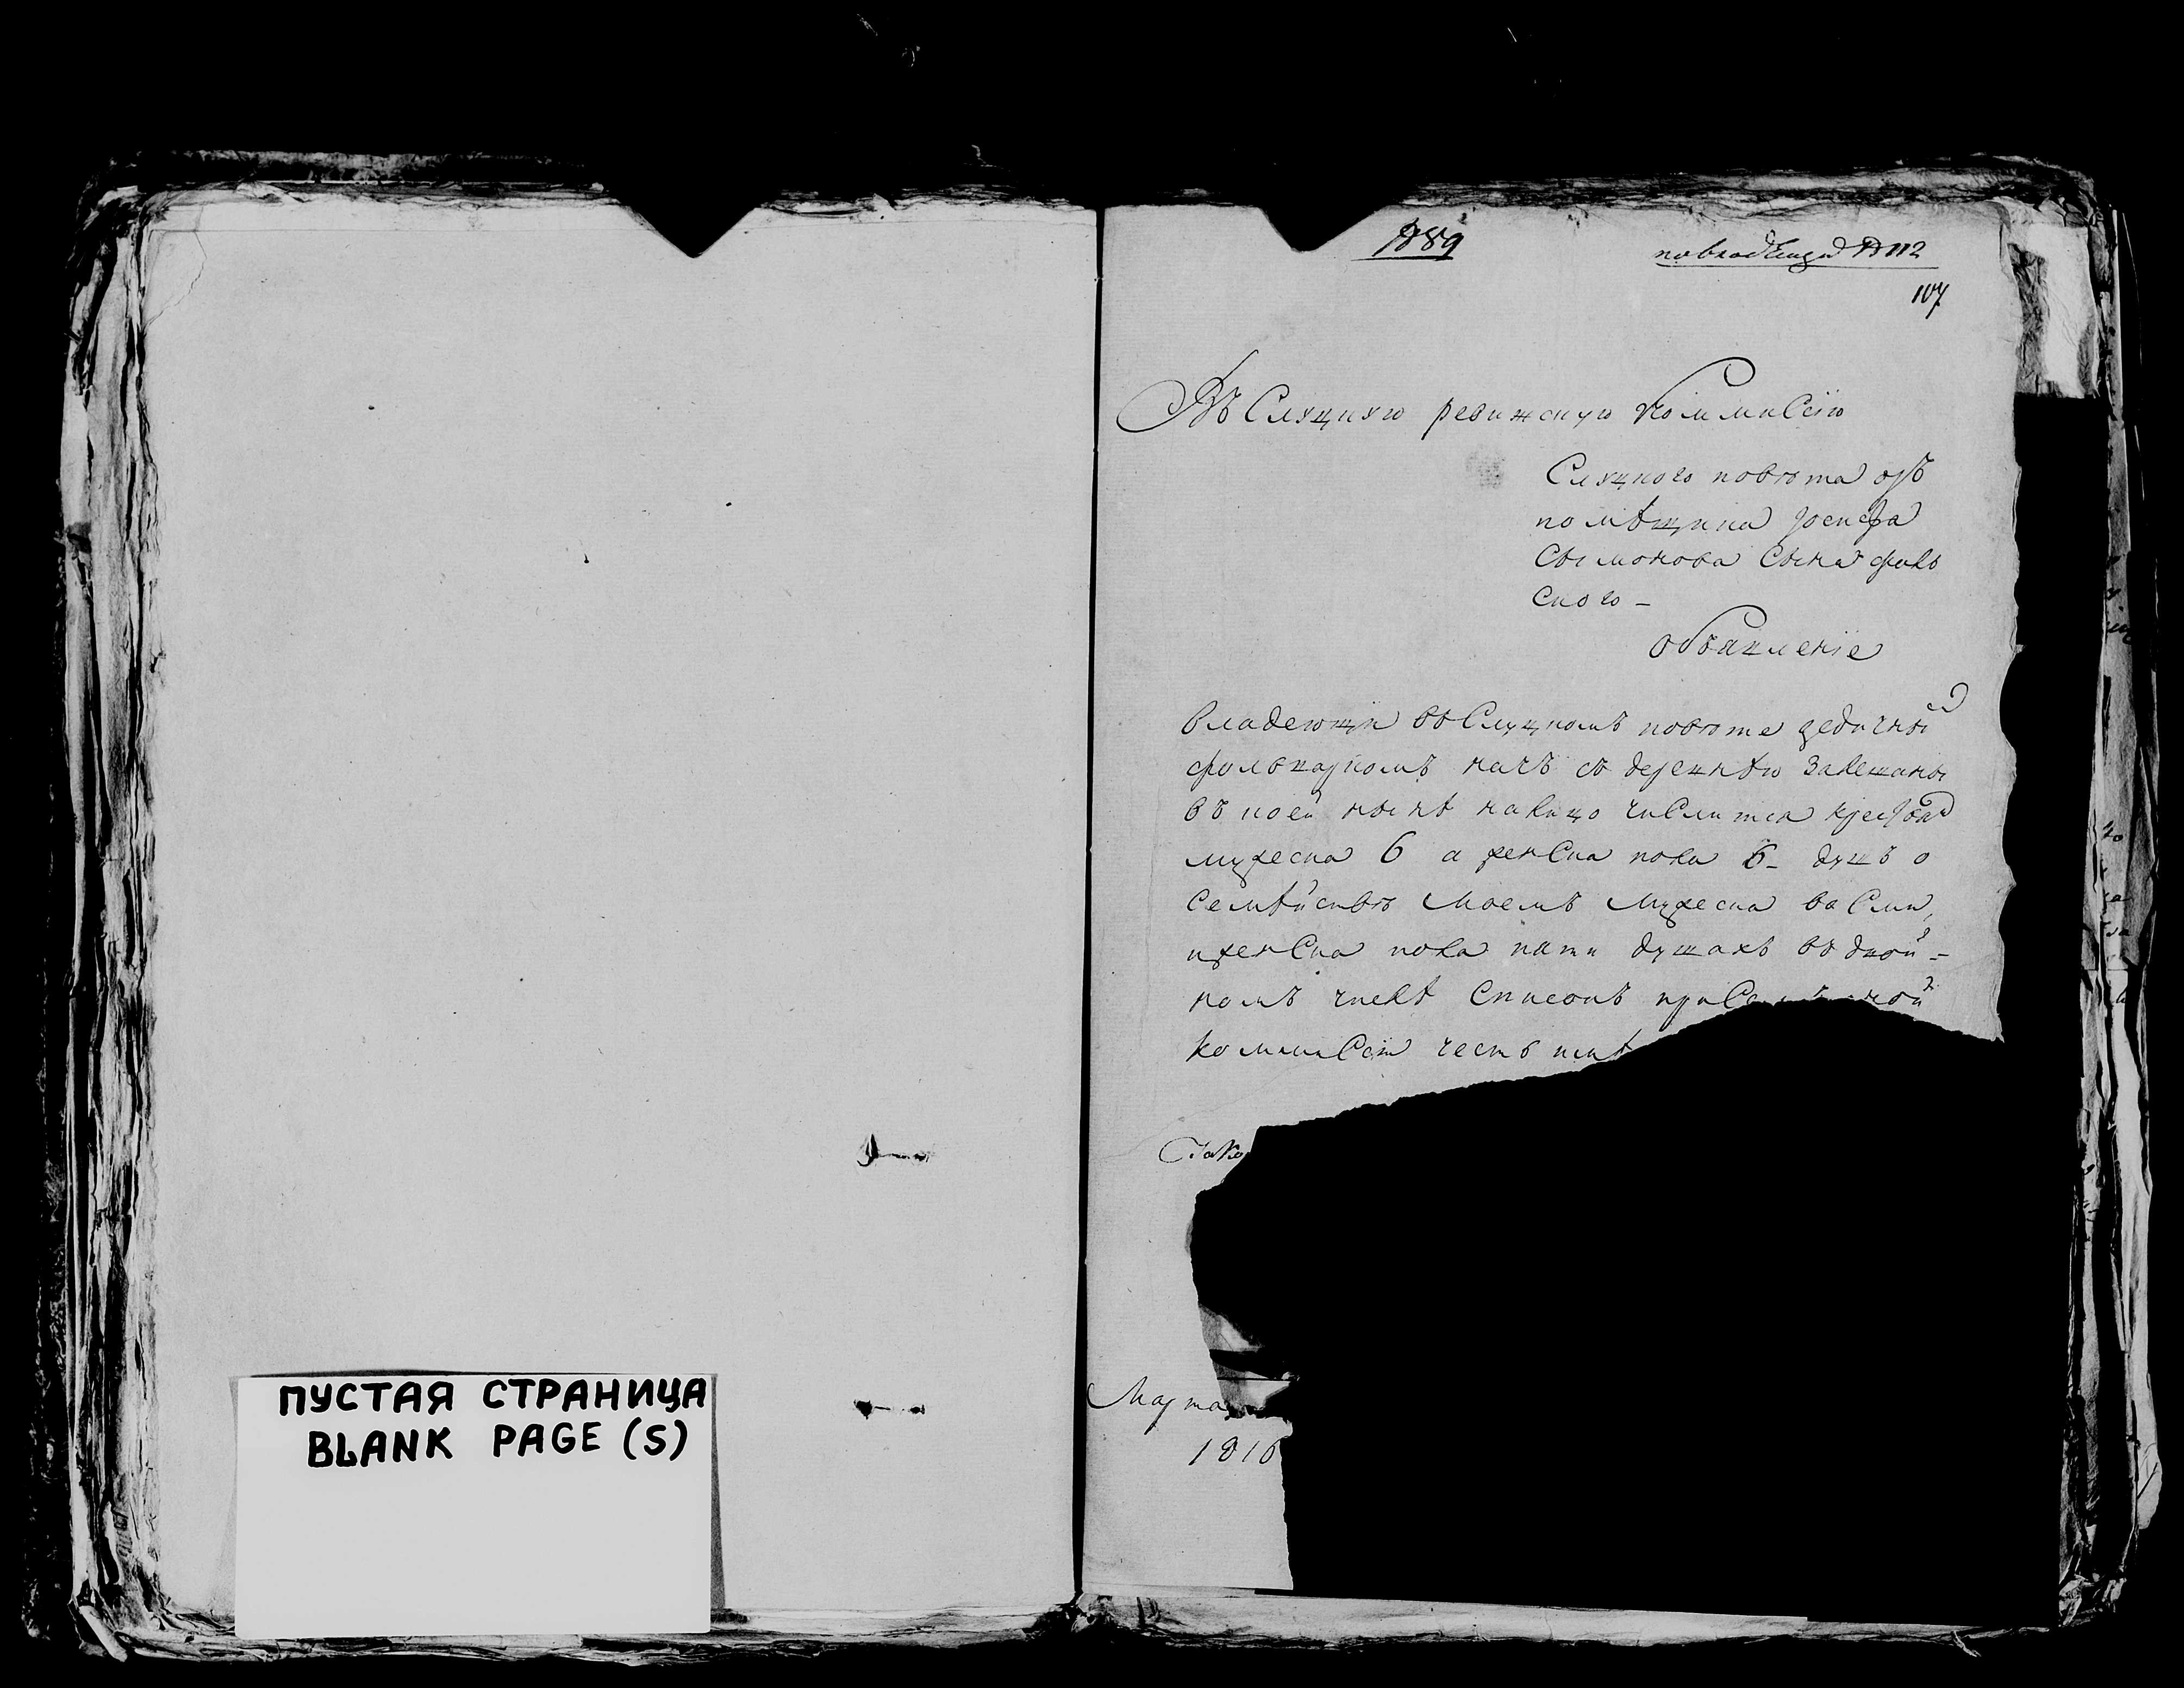 ПУСТАЯ СТРАНИЦА
BLANK PAGE (S)
1889
112
107
Въ Слуцкую ревижскую Коммисію
Слуцкого повѣта отъ
помѣщика Іосифа
Сымонова Сына
ского –
Объявленіе
Владеющи въ Слуцкомъ повѣте дедичны
фольваркомъ съ деревнѣю
въ коей нынѣ налицо числится
мужеска 6 а женска пола 6 – душъ о
Семѣйствѣ Моемъ Мужеска
иженска пола пяти душахъ
комъ числѣ Списокъ
Коммисіи честь имѣ
Іако
Марта
1816